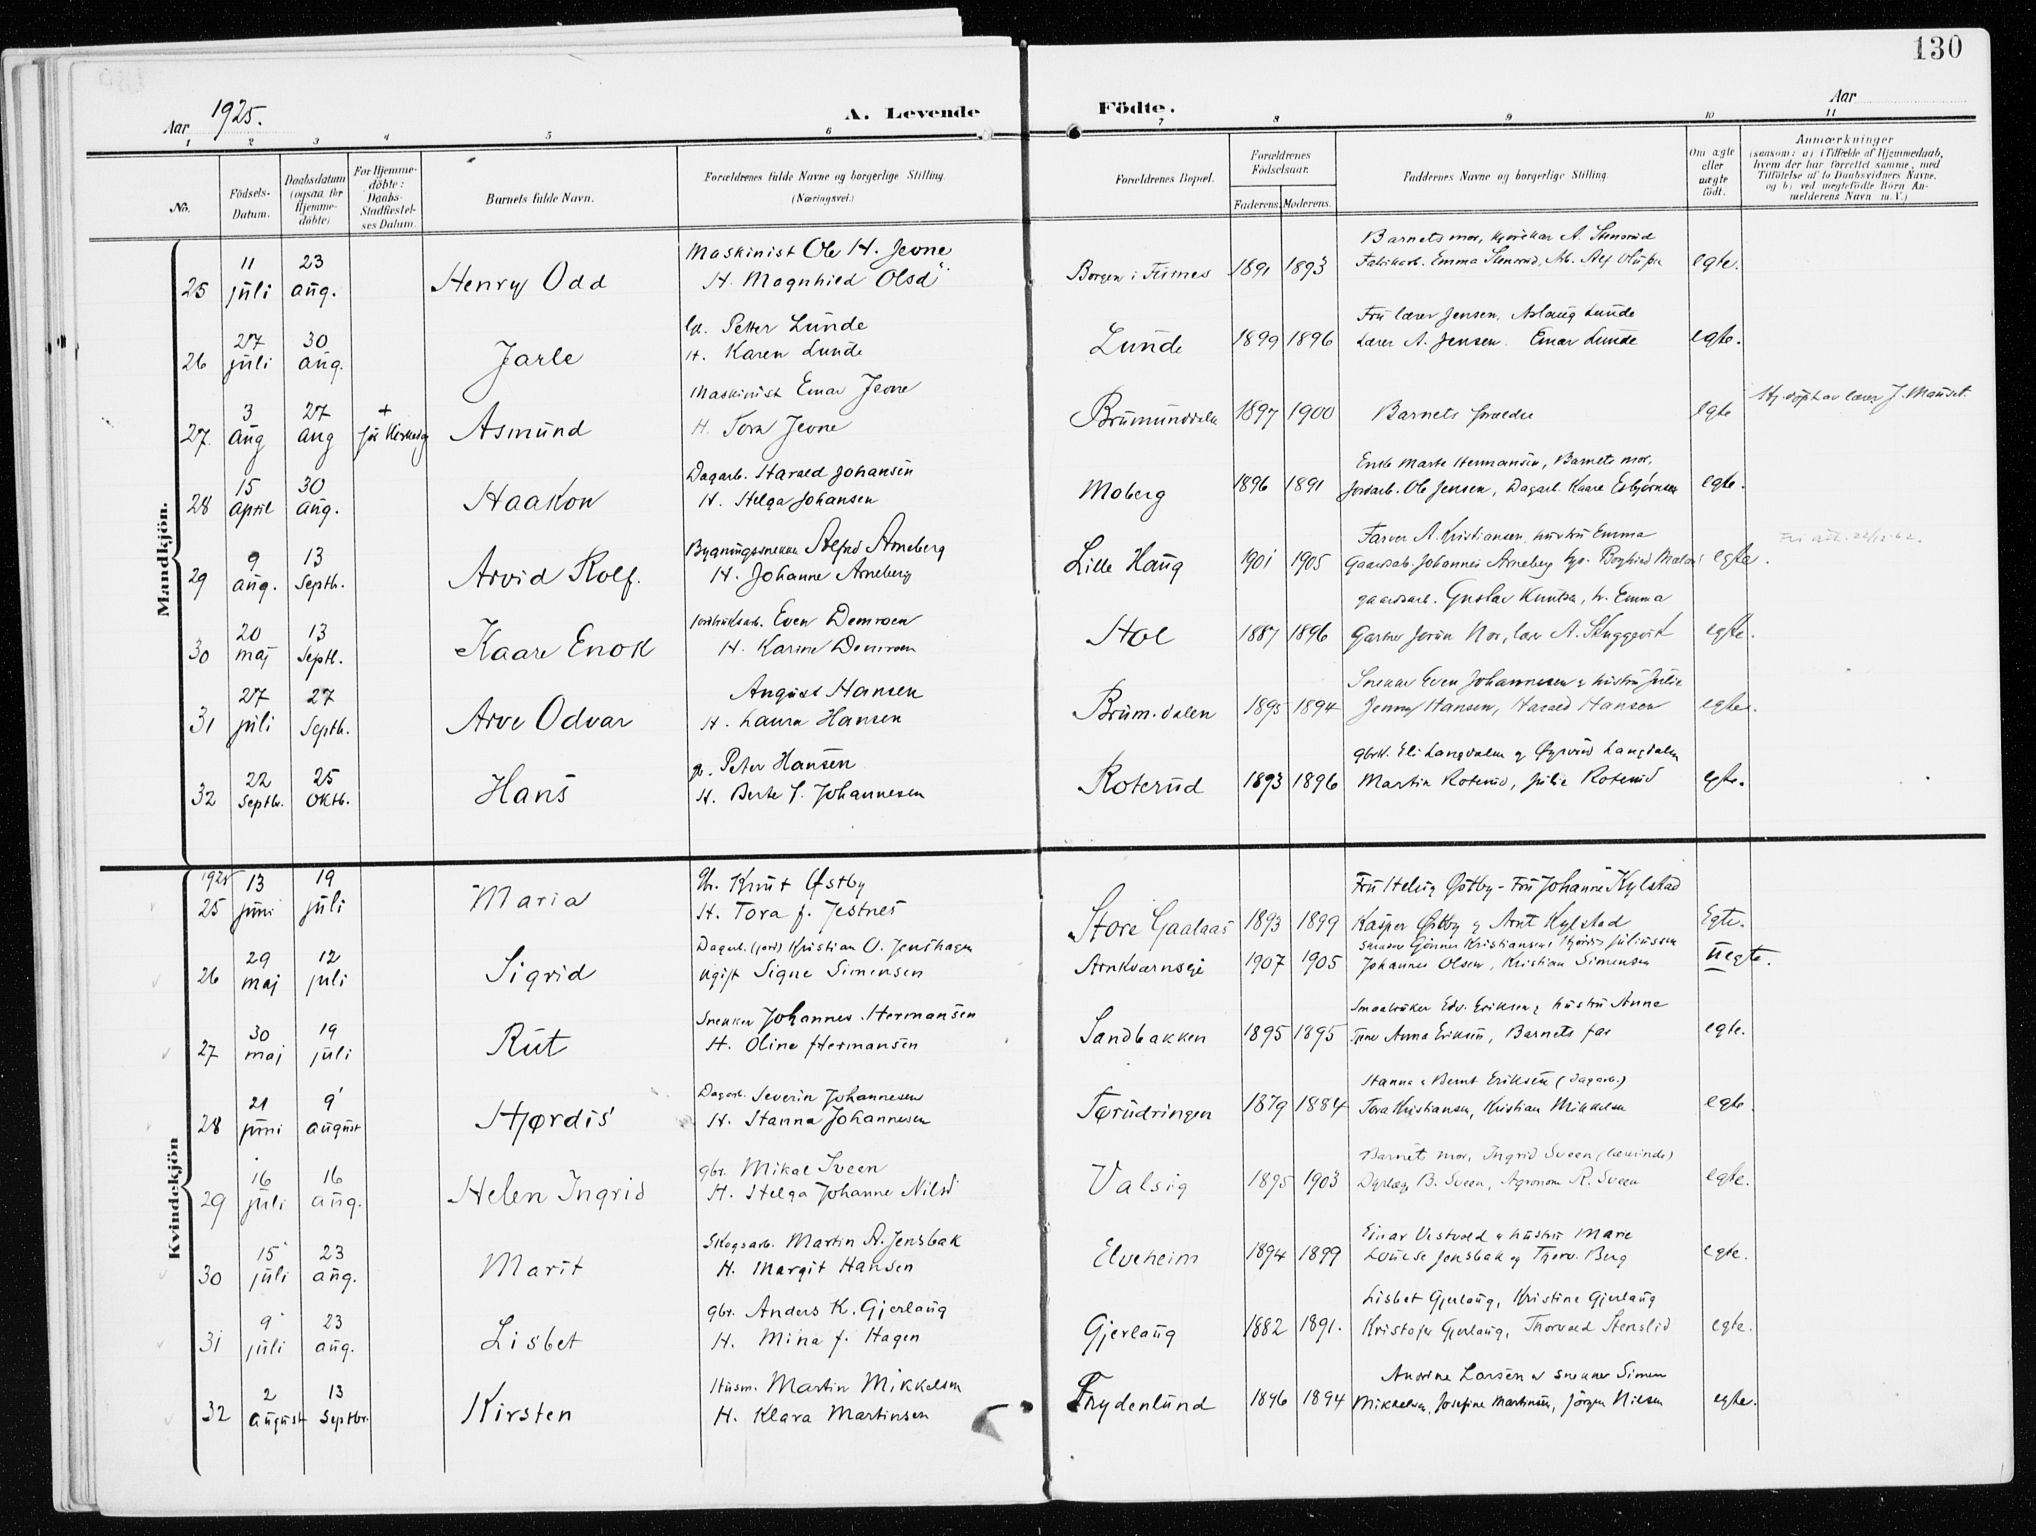 130
Aar 1925.
A. Levende
Födte.
Aar
1 2 3 4 5 6 7 8 9 10 11
No.
Födsels-Datum.
Daabsdatum (ogsaa for Hjemmedöbte)
For Hjemmedöbte: Daabs-Stadfæstelses Datum.
Barnets fulde Navn.
Forældrenes fulde Navne og borgerlige Stilling. (Næringsvei.)
Forældrenes Bopæl.
Forældrenes Födselsaar.
Faderens. Moderens.
Faddernes Navne og borgerlige Stilling.
Om ægte eller uægte födt.
Anmærkninger
(saasom: a) i Tilfælde af Hjemmedaab, hvem der har forrettet samme, med Tilföielse af to Daabsvidners Navne, og b) ved uægtefödte Börn Anmelderens Navn m. V.)
Mandkjön.
25 11 juli 23 aug. Henry Odd Maskinist Ole H. Jevne Borgen i Furnes 1891 1893 Barnets mor, A. Stensrud egte.
H. Magnhild Olsd. Emma Stensrud,
26 27 juli 30 aug. Jarle Petter Lunde Lunde 1899 1896 Fru lærer Jensen, Aslaug Lunde egte.
H. Karen Lunde Lærer A. Jensen. Einar Lunde
27. 3 aug 27 aug + Asmund Maskinist Einar Jevne Brumunddalen 1897 1900 Barnets forældre egte Hj. döpt av lærer J.
H. Tora Jevne
28 15 april 30 aug. Haakon Dagarb. Harald Johansen Moberg 1896 1891 Enke Marte Hermansen, Barnets mor, egte.
H. Helga Johansen Jordarb. Ole Jensen, Dagarb. Kaare Esbjörnsen
29 9 aug. 13 Septb. Arvid Rolf. Bygningssnekker Alfred Arneberg Lille Haug 1901 1905 Farver A. Kristiansen, hustru Emma egte.
H. Johanne Arneberg Gaardsarb. Johannes Arneberg
30 20 maj 13 Septb. Kaare Enok Even Demroen Hol 1887 1896 gaardsarb. Gustav Knutsen, h. Emma egte.
H. Karine Demroen Gartner
31 27 juli 27 Septb. Arve Odvar August Hansen Brum.dalen 1895 1894 Snekker Even Johannesen & hustru Julie egte.
H. Laura Hansen Jenny Hansen, Harald Hansen
32 22 Septb. 25 Oktb. Hans Peter Hansen Roterud 1893 1896 Eli Langdalen og Øyvind Langdalen egte.
H. Berte J. Johannesen Martin Roterud, Julie Roterud
Kvindekjön
1925
25 13 juni 19 juli Maria Knut Østby Store Gaalaas 1893 1899 Fru Helga Østby - Fru Johanne Kylstad Egte.
H. Tora f. Jestnes Kasper Østby og Arnt Kylstad
26 29 maj 12 juli Sigrid Dagarb. (jord) Kristian O. Jenshagen Arnkværnseje 1907 1905 Gunnar Kristiansen, Hjørdis Juliussen uegte.
ugift Signe Simensen Johannes Olsen, Kristian Simensen
27 30 maj 19 juli Rut Snekker Johannes Hermansen Sandbakken 1895 1895 Smaabruker Edv. Eriksen & hustru Anne egte.
H. Oline Hermansen Anna Eriksen, Barnets far
28 21 juni 9 august Hjørdis Dagarb. Severin Johannesen Tørudringen 1879 1884 Hanna & Bernt Eriksen (dagarb.) egte
H. Hanna Johannesen Tora Kristiansen, Kristian Mikkelsen
29 16 juli 16 aug. Helen Ingrid gbr. Mikal Sveen Valsig 1895 1903 Barnets mor, Ingrid Sveen egte.
H. Helga Johanne Nilsd. Dyrlæge B. Sveen, Agronom R. Sveen
30 15 juli 23 aug. Marit Skogsarb. Martin A. Jensbak Elveheim 1894 1899 Einar Vestvold & hustru Marie egte.
H. Margit Hansen Louise Jensbak og Thorv. Berg
31 9 juli 23 aug. Lisbet gbr. Anders K. Gjerlaug Gjerlaug 1882 1891. Lisbet Gjerlaug, Kristine Gjerlaug egte.
H. Mina f. Hagen Kristofer Gjerlaug, Thorvald Stenslid
32 2 august 13 Septbr. Kirsten Husm. Martin Mikkelsen Frydenlund 1896 1894 Andrine Larsen & snekker Simen egte.
H. Klara Martinsen Mikkelsen, Josefine Martinsen, Jörgen Nilsen